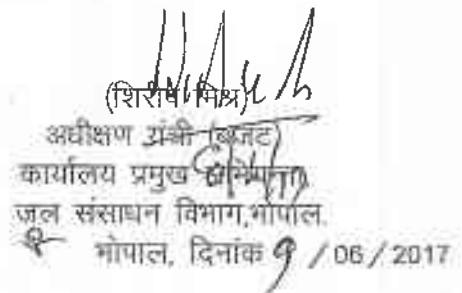 (शिरीष मिश्र)
अधीक्षण यंत्री (बजट)
कार्यालय प्रमुख अभियंता
जल संसाधन विभाग,भोपाल.
भोपाल, दिनांक 9 / 06 / 2017